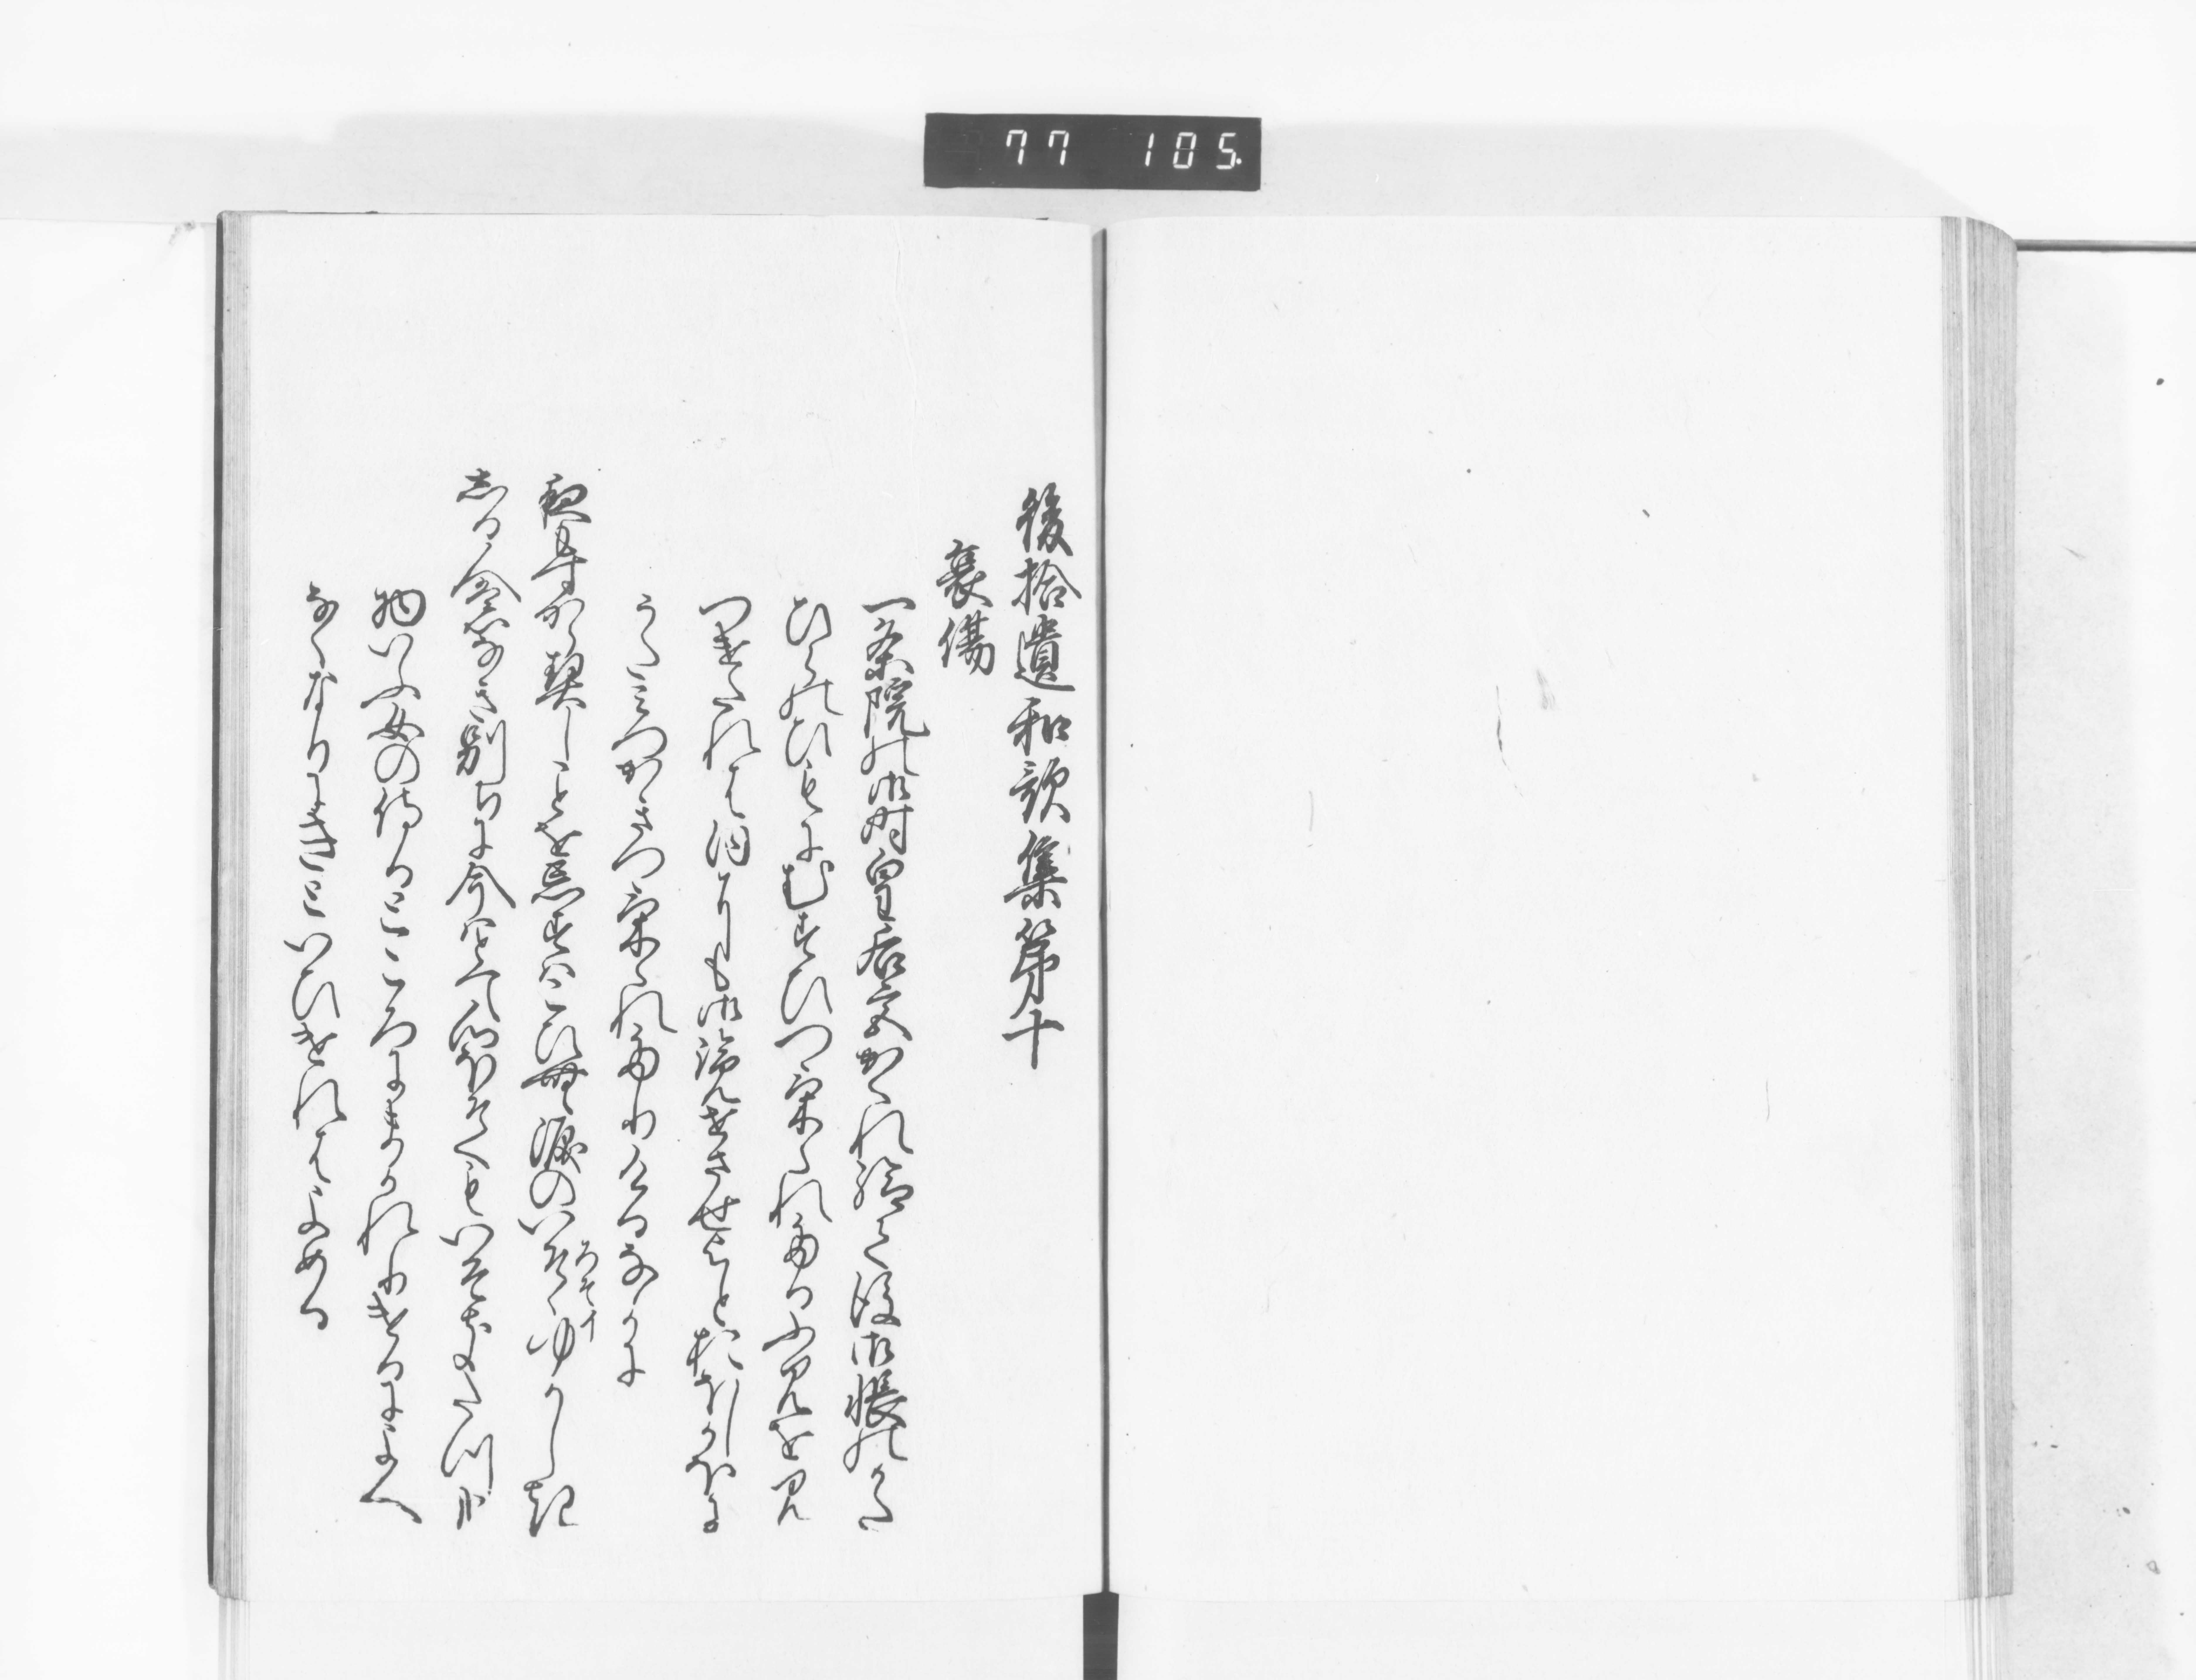 77 105.
後拾遺和歌集第十
哀傷
一条院の御時皇后宮かくれ給て後御帳のかた
ひらのひもにむすひつけられたるふみを見
つけたれは内にも御らんせさせよとおほしかほに
うたみつかきつけられたりけるなかに
夜もすから契しことを忘すはこひむ涙のいろそゆかしき
ろそイ
しる人もなき別ちに今はとて心ほそくもいそきたつ哉
物いふ女の侍るところにまかれりけるによへ
なくなりにきといひけれはよめる